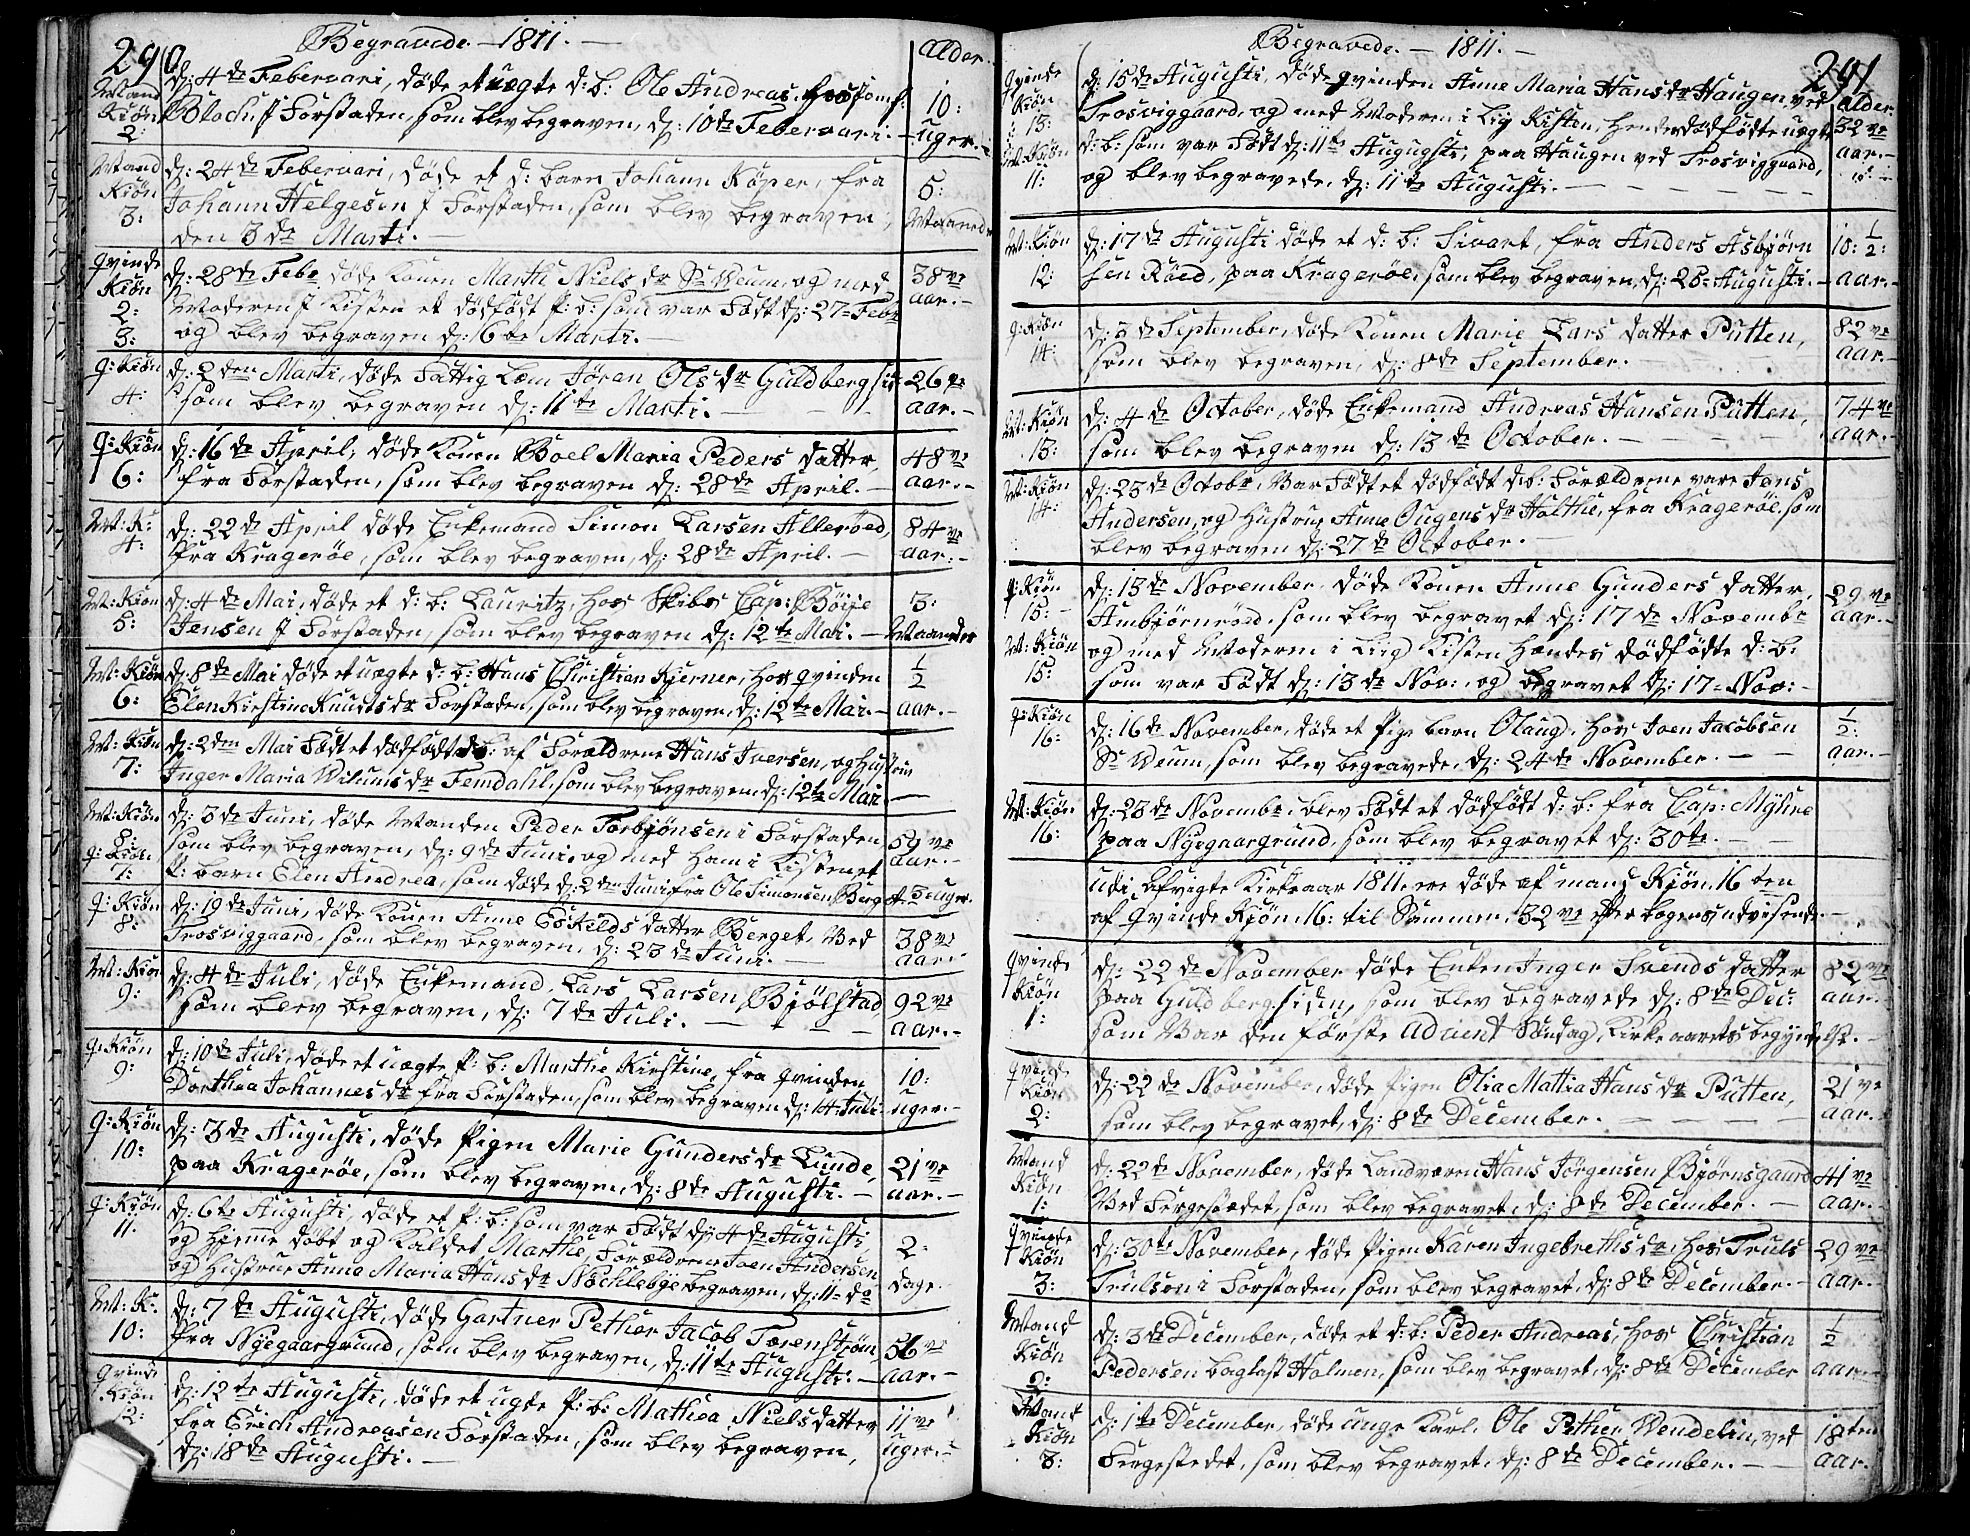 290
Begravede. — 1811. —
Alder.
Mand Kiøn 2:
d: 4de Februari, døde et uægte d: b: Ole Andreas, hos Jomf:
Bloch, i Forstaden, som blev begraven, d: 10de Februari. —
10: uger. —
Mand Kiøn 3:
d: 24de Februari, døde et d: barn Johann Köper, fra
Johann Helgesen i Forstaden, som blev begraven,
den 3de Marti. —
5: Maaneder
Qvinde Kiøn 2: 3:
d: 28de Febr døde Konen Marthe Niels dr Sr Weum, og med
Moderen i Kisten et dødfødt p: b: som var Født d: 27= Febr
og blev begraven d: 6te Marti. —
38ve aar. —
q: Kiøn 4:
d: 2den Marti, døde Fattig Lem Jøren Ols dr Guldbergsid
som blev begraven d: 11te Marti. —
26ve aar. —
q: Kiøn 6:
d: 16de April, døde Konen Boel Maria Peders datter,
fra Forstaden, som blev begraven d: 28de April. —
48ve aar. —
M: K: 4:
d: 22de April døde Enkemand Simon Larsen Allerøed,
fra Kragerøe, som blev begraven, d: 28de April. —
84ve aar. —
M: Kiøn 5:
d: 4de Mai, døde et d: b: Lauritz, hos Skibs Cap: Böije
Jensen i Forstaden, som blev begraven d: 12te Mai. —
3: Maander
M: Kiøn 6:
d: 8de Mai døde et uægte d: b: Hans Christian Kjerner, hos qvinden
Elen Kirstine Knudts dr Forstaden, som blev begraven, d: 12te Mai. —
1/2 aar. —
M: Kiøn 7:
d: 2den Mai Født et dødfødt d: b: af Forældrene Hans Iversen, og Hustru
Inger Maria Willums dr Femdahl, som blev begraven d: 12te Mai. —
M: Kiøn 8: q: Kiøn 7:
d: 3de Juni, døde Manden Peder Torbjönsen i Forstaden
som blev begraven, d: 9de Juni, og med ham i Kisten et
p: barn Elen Andrea, som døde d: 2den Juni fra Ole Simonsen Berget. 3 uger.
59ve aar. —
q: Kiøn 8:
d: 19de Juni, døde Konen Anne Eskilds datter Berget, Ved
Trosviggaard, som blev begraven, d: 23de Juni. —
38ve aar.
M: Kiøn 9:
d: 4de Juli, døde Enkemand, Lars Larsen, Bjölstad,
som blev begraven, d: 7de Juli. —
92ve aar. —
q: Kiøn 9:
d: 10de Juli, døde et uægte p: b: Marthe Kirstine, fra qvinden
Dorthea Johannes dr fra Forstaden, som blev begraven d: 14: Juli.
10: uger. —
q: Kiøn 10:
d: 3de Augusti, døde Pigen Marie Gunders dr Lunde,
paa Kragerøe, som blev begraven, d: 8de Augusti. —
21ve aar. —
q: Kiøn 11:
d: 6te Augusti, døde et p: b: som var Født d: 4de Augusti,
og hjemme døbt og Kaldet Marthe, Forældrene Joen Andersen
og Hustrue Anne Maria Hans dr Nöchlebye begraven, d: 11= do
2: dage.
M: K: 10:
d: 7de Augusti, døde Gartner Pether Jacob Tærenström,
fra Nyegaargrund, som blev begraven, d: 11te Augusti. —
56ve aar. —
Qvinde Kiøn 12:
d: 12te Augusti, døde et ugte p: b: Mathea Niels datter
fra Erich Andreasen Forstaden, som blev begraven,
d: 18de Augusti. —
11ve uger. —
Begravede. — 1811. —
291
Alder.
Qvinde Kiøn 13: M: Kiøn 11:
d: 15de Augusti, døde qvinden Anne Maria Hans dr Haugen, ved
Trosviggaard, og med Moderen i Liig Kisten, hendes dødfødte uægte
d: b: som var Født d: 11te Augusti, paa Haugen ved Trosviggaard,
og blev begravede, d: 11te Augusti. —
32ve aar. —
M: Kiøn 12:
d: 17de Augusti døde et d: b: Sivart, fra Anders Asbjörn
sen Röed, paa Kragerøe, som blev begraven, d: 25= Augusti. —
10: 1/2: aar. —
q: Kiøn 14:
d: 3de September, døde Konen Marie Lars datter Putten,
som blev begraven, d: 8de September.
82ve aar. —
M: Kiøn 13:
d: 4de October, døde Enkemand Andreas Hansen Putten,
som blev begraven d: 13de October. —
74ve aar. —
M: Kiøn 14:
d: 23de Octobr, Var Født et dødfødt d: b: Forældrene vare Jens
Andersen, og Hustrue Anne Ougens dr Holthe, fra Kragerøe, som
blev begraven d: 27de October. —
q: Kiøn 15: — M: Kiøn 15:
d: 13de November, døde Konen Anne Gunders datter,
Ambjörnröed, som blev begravet d: 17de Novembr
og med Moderen i Liig Kisten Hendes dødfødte d: b:
som var Født d: 13de Nov:, og begravet d: 17= Nov: —
29ve aar. —
q: Kiøn 16:
d: 16de November, døde et Pige barn Olaug, hos Joen Jacobsen
Sr Weum, som blev begravede, d: 24de November. —
1/2: aar. —
M: Kiøn 16:
d: 23de Novembr, blev Født et dødfødt d: b: fra Cap: Myhre
paa Nyegaargrund, som blev begravet d: 30te. —
Udi Afvigte Kirkeaar 1811. ere døde af mand Kiøn, 16ten
af Qvinde Kiøn 16: til Sammen, 32ve efter bogens udvisende. —
Qvinde Kiøn 1:
d: 22de November døde Enken Inger Svends datter
paa Guldbergsiden, som blev begravede d: 8de Dec:
som Var den første Advent Söndag, Kirke aarets begyndelse. —
82ve aar. —
Qvinde Kiøn 2:
d: 22de November, døde Pigen Olia Mattia Hans dr Putten,
som blev begravet, d: 8de December. —
21ve aar. —
Mand Kiön 1:
d: 22de November, døde Landværn Hans Jörgensen Bjørnsgaard
Ved Fergestædet, som blev begravet, d: 8de December. —
41ve aar. —
Qvinde Kiøn 3:
d: 30te November, døde Pigen Karen Ingebreths dr, hos Truls
Trulsen i Forstaden, som blev begravet, d: 8de December. —
29ve aar. —
Mand Kiøn 2:
d: 3de December, døde et d: b: Peder Andreas, hos Christian
Pedersen baglast Holmen, som blev begravet, d: 8de December
1/2 aar. —
Mand Kiøn 3:
d: 1te December, døde unge Karl, Ole Pether Wendelin, ved
Fergestedet, som blev begravet, d: 8de December. —
18ten aar.